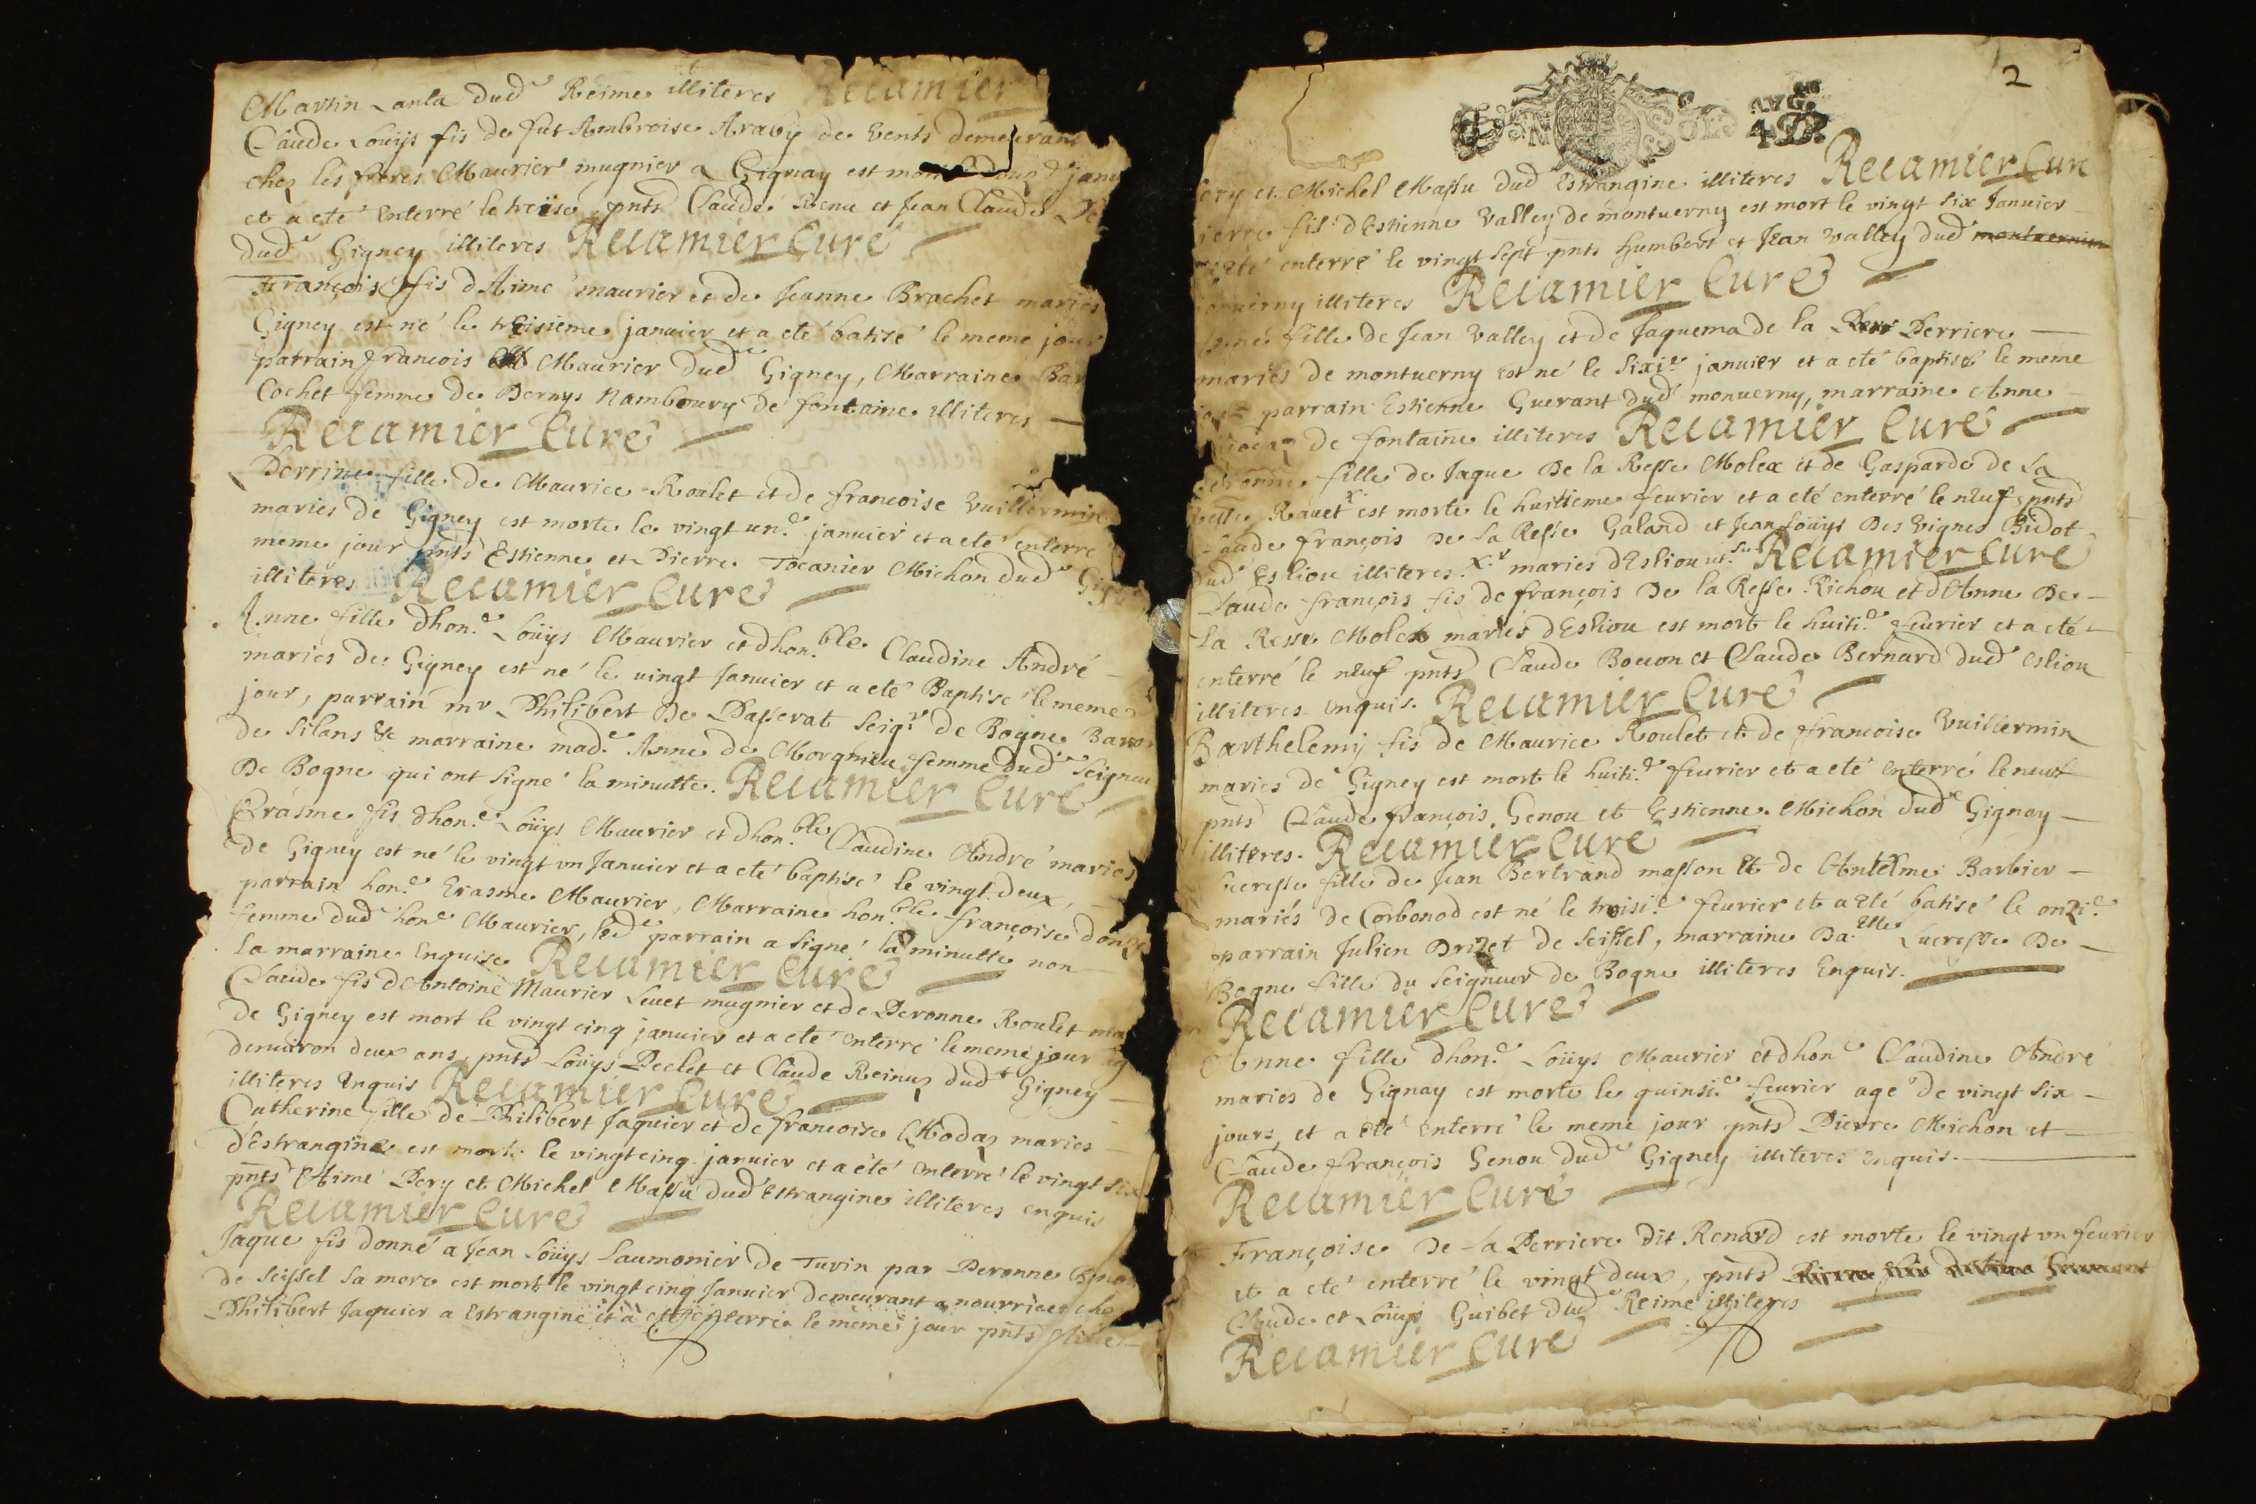 Martin Lanta dud.e Reime illiteres Recamier
Claude Louÿs fis de fut Ambroise Aravy de Vents demeurant
chez les freres Maurier mugnier a Gignay est mort janv
et a eté enterré le treise, pnts Claude Renu et Jean Claude
dud.e Gigney illiteres Recamier Curé
François fis d'Aimé maurier et de Jeanne Brachet mariés
Gigney est né le treisieme janvier et a eté batisé le meme jour
parrain françois Maurier dud.e Gigney, Marraine
Cochet femme de Dernys Namboury de fontaine illiteres
Recamier Curé
Perrine fille de Maurice Roalet et de francoise Vuillermin
mariés de Gigney est morte le vingt un.e janvier et a eté enterré
meme jour pnts Estienne et Pierre Tocanier Michon dud.e
illiteres Recamier Curé
Anne fille dhon.e Louÿs Maurier et dhon.ble Claudine André
mariés de Gigney est né le vingt Janvier et a eté Baptisé le meme
jour, parrain mr Philibert De Passerat seigr de Bogne Baron
de Silans & marraine mad.e Anne de Morgnieu femme dud.e Seigneu
De Bogne qui ont signé la minutte. Recamier Curé
Erasme fis dhon.e Louÿs Maurier et dhon.ble Claudine André mariés
de Gigney est né le vingt vn Janvier et a eté baptisé le vingt deux,
parrain hon.e Erasme Maurier, Marraine hon.ble françoise
femme dud.e hon.e Maurier, led.e parrain a signé la minutte non
la marraine Enquise Recamier Curé
Claude fis dAntoine Maurier Levet mugnier et de Peronne Roulet
de Gigney est mort le vingt cinq janvier et a eté enterré le meme jour
denviron deux ans, pnts Louÿs Peclet et Claude Reinuz dud.e Gigney
illiteres Enquis Recamier Curé
Catherine fille de Philibert Jaquier et de francoise Modaz mariés
d'Estrangine est morte le vingt cinq janvier et a été enterré le vingt six
pnts Aimé Pery et Michel Massu dud.e Estrangine illiteres enquis
Recamier Curé
Jaque fis donné a Jean Louÿs Laumonier de Turin par Peronne
de Seissel sa mere est mort le vingt cinq Janvier demeurant a nourrice
Philibert Jaquier a Estrangine et a eté enterré le meme jour pnts

2
AVG.
4 D.
et Michel Massu dud.e Estrangine illiteres Recamier Curé
fis dEstienne Valley de montverny est mort le vingt six Janvier
eté enterré le vingt sept pnts humbert et Jean Valley dud.e
illiteres Recamier Curé
fille de Jean Valley et de Jaquema de la Perriere
mariés de montverny est né le sixi.e janvier et a eté baptisé le meme
parrain Estienne Guerant dud.e monverny, marraine Anne
de fontaine illiteres Recamier Curé
fille de Jaque De la Resse Molex et de Gasparde de la
Ravet x est morte le huitieme fevrier et a eté enterré le neuf pnts
Claude françois De la Resse Galand et Jean Louÿs Des Vignes Bidot
dud.e Esliou illiteres. x mariés dEsliou Recamier Curé
Claude françois fis de françois De la Resse Richou et dAnne De
la Resse Molex mariés dEsliou est mort le huiti.e fevrier et a eté
enterré le neuf pnts Claude Bovon et Claude Bernard dud.e Esliou
illiteres enquis. Recamier Curé
Barthelemÿ fis de Maurice Roulet et de francoise Vuillermin
mariés de Gigney est mort le huiti.e fevrier et a eté enterré le neuf
pnts Claude françois Genou et Estienne Michon dud.e Gignay
illiteres. Recamier Curé
Lucresse fille de Jean Bertrand masson et de Antelme Barbier
mariés de Corbonod est né le troisi.e fevrier et a eté batisé le onzi.e
parrain Julien Drizet de Seissel, marraine Da.elle Lucresse De
Bogne fille du Seigneur de Bogne illiteres Enquis.
Recamier Curé
Anne fille dhon.e Louÿs Maurier et dhon.e Claudine André
mariés de Gignay est morte le quinsi.e fevrier agé de vingt six
jours, et a été enterré le meme jour pnts Pierre Michon et
Claude françois Genou dud.e Gigney illiteres enquis.
Recamier Curé
Françoise De la Perriere dit Renard est morte le vingt vn fevrier
et a eté enterré le vingt deux, pnts
Claude et Louÿs Guibet dud.e Reime illiteres
Recamier Curé